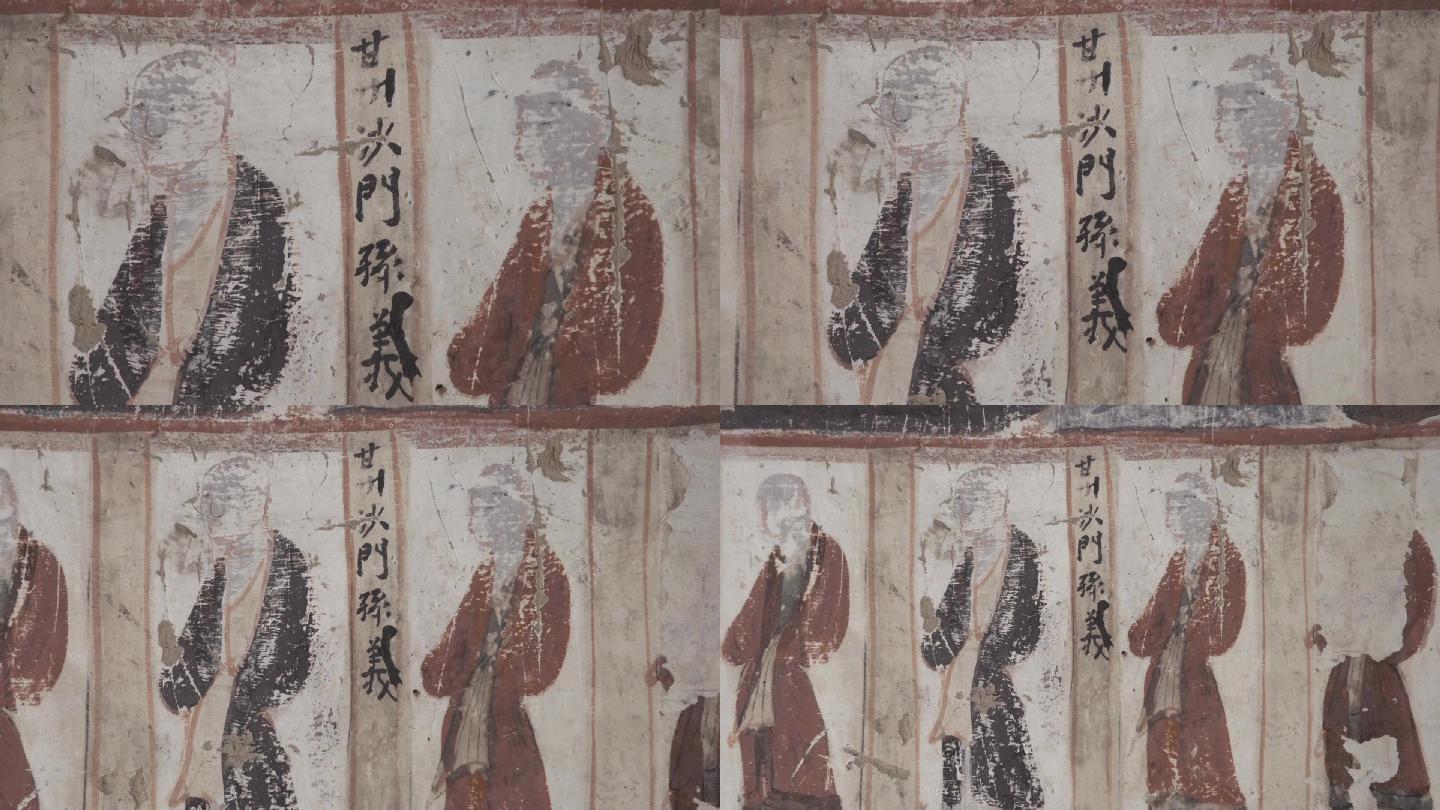 甘州沙門孫義
甘州沙門孫義
甘州沙門孫義
甘州沙門孫義